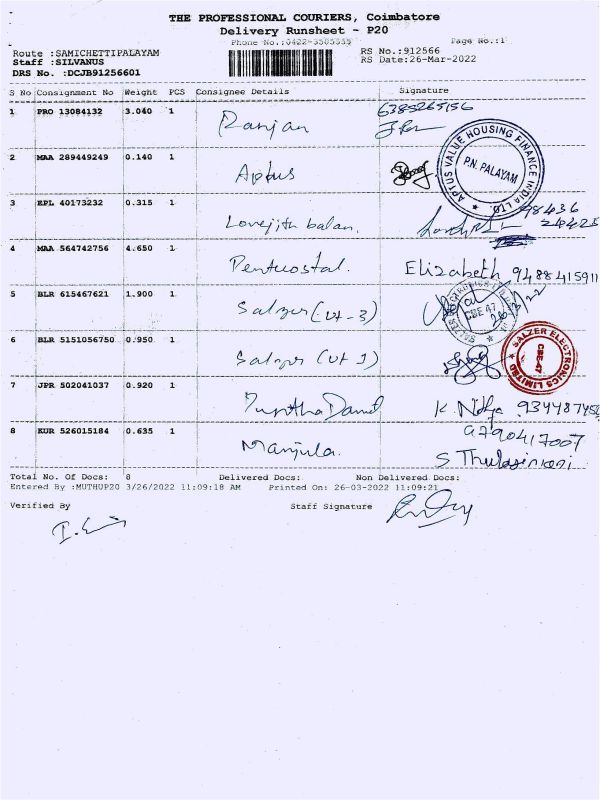 THE PROFESSIONAL COURIERS, Coimbatore
Delivery Runsheet - P20
Phone No.:0422-3585355 Page No.:1
Route :SAMICHETTIPALAYAM RS No.:912566
Staff :SILVANUS RS Date:26-Mar-2022
DRS No. :DCJB91256601
S No Consignment No Weight PCS Consignee Details Signature
1 PRO 13084132 3.040 1 Ranjan 6385265156
2 MAA 289449249 0.140 1 Aptus
APTUS VALUE HOUSING FINANCE INDIA LTD
P.N. PALAYAM
3 EPL 40173232 0.315 1 Lovejith balan. 98436
24425
4 MAA 564742756 4.650 1 Pentecostal. Elizabeth 9488415911
5 BLR 615467621 1.900 1 Salzer (Ut-3)
CBE 47
6 BLR 5151056750 0.950 1 Salzer (Ut 1)
SALZER ELECTRONICS LIMITED
CBE-47
7 JPR 502041037 0.920 1 K Nithya 934487456
8 KUR 526015184 0.635 1 Manjula. 9790417007
Total No. Of Docs: 8 Delivered Docs: Non Delivered Docs:
Entered By :MUTHUP20 3/26/2022 11:09:18 AM Printed On: 26-03-2022 11:09:21
Verified By Staff Signature